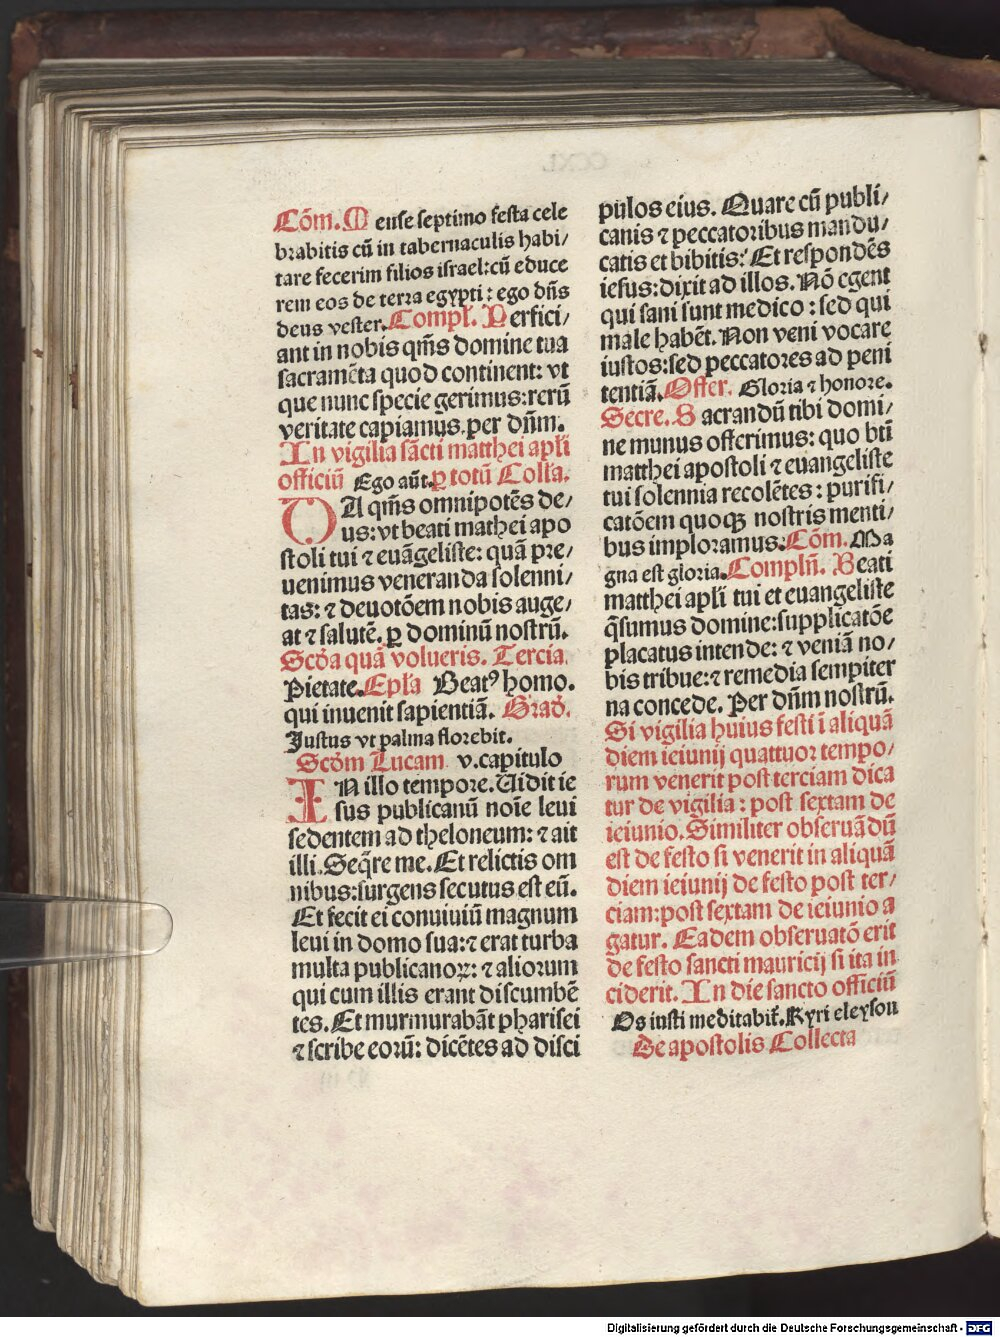 Cōm. Mense septimo festa cele
brabitis cū in tabernaculis habi/
tare fecerim filios israel: cū educe
rem eos de terra egypti: ego dn̄s
deus vester. Compl̄. Perfici/
ant in nobis qm̄s domine tua
sacramēta quod continent: vt
que nunc specie gerimus: rerū
veritate capiamus. per dn̄m.
In vigilia sācti matthei apl̄i
officiū Ego aūt. ꝑ totū Coll̄a.
DA qm̄s omnipotēs de/
us: vt beati mathei apo
stoli tui ⁊ euāgeliste: quā pre/
uenimus veneranda solenni/
tas: ⁊ deuotōem nobis auge/
at ⁊ salutē. ꝑ dominū nostrū.
Scd̄a quā volueris. Tercia
Pietate. Epl̄a Beatꝰ homo.
qui inuenit sapientiā. Grad̄.
Justus vt palma florebit.
Scd̄m Lucam v. capitulo
IN illo tempore. Uidit ie
sus publicanū noīe leui
sedentem ad theloneum: ⁊ ait
illi. Seq̄re me. Et relictis om
nibus: surgens secutus est eū.
Et fecit ei conuiuiū magnum
leui in domo sua: ⁊ erat turba
multa publicanoꝝ: ⁊ aliorum
qui cum illis erant discumbē
tes. Et murmurabāt pharisei
⁊ scribe eorū: dicētes ad disci
pulos eius. Quare cū publi/
canis ⁊ peccatoribus mandu/
catis et bibitis? Et respondēs
iesus: dixit ad illos. Nō egent
qui sani sunt medico: sed qui
male habēt. Non veni vocare
iustos: sed peccatores ad peni
tentiā. Offer. Gloria ⁊ honore.
Secre. Sacrandū tibi domi/
ne munus offerimus: quo bt̄i
matthei apostoli ⁊ euangeliste
tui solennia recolētes: purifi/
catōem quoqꝫ nostris menti/
bus imploramus. Cōm. Ma
gna est gloria. Compln̄. Beati
matthei apl̄i tui et euangeliste
q̄sumus domine: supplicatōe
placatus intende: ⁊ veniā no/
bis tribue: ⁊ remedia sempiter
na concede. Per dn̄m nostrū.
Si vigilia huius festi ī aliquā
diem ieiunij quattuor tempo/
rum venerit post terciam dica
tur de vigilia: post sextam de
ieiunio. Similiter obseruādū
est de festo si venerit in aliquā
diem ieiunij de festo post ter/
ciam: post sextam de ieiunio a
gatur. Eadem obseruatō erit
de festo sancti mauricij si ita in
ciderit. In die sancto officiū
Os iusti meditabit̄. Kyri eleyson
De apostolis Collecta
Digitalisierung gefördert durch die Deutsche Forschungsgemeinschaft - DFG